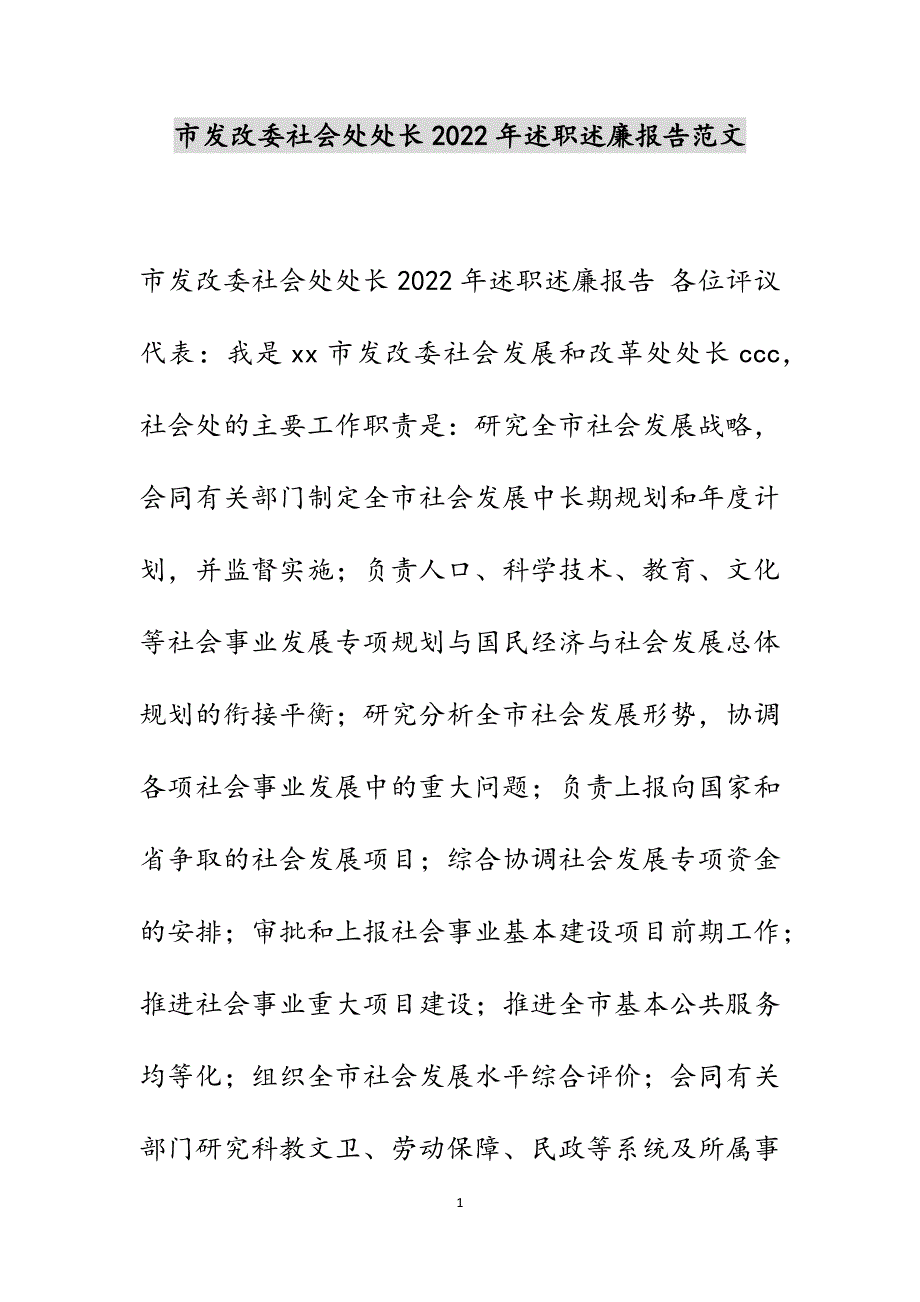 市发改委社会处处长2022年述职述廉报告范文
市发改委社会处处长2022年述职述廉报告 各位评议
代表：我是xx市发改委社会发展和改革处处长ccc，
社会处的主要工作职责是：研究全市社会发展战略，
会同有关部门制定全市社会发展中长期规划和年度计
划，并监督实施；负责人口、科学技术、教育、文化
等社会事业发展专项规划与国民经济与社会发展总体
规划的衔接平衡；研究分析全市社会发展形势，协调
各项社会事业发展中的重大问题；负责上报向国家和
省争取的社会发展项目；综合协调社会发展专项资金
的安排；审批和上报社会事业基本建设项目前期工作；
推进社会事业重大项目建设；推进全市基本公共服务
均等化；组织全市社会发展水平综合评价；会同有关
部门研究科教文卫、劳动保障、民政等系统及所属事
1